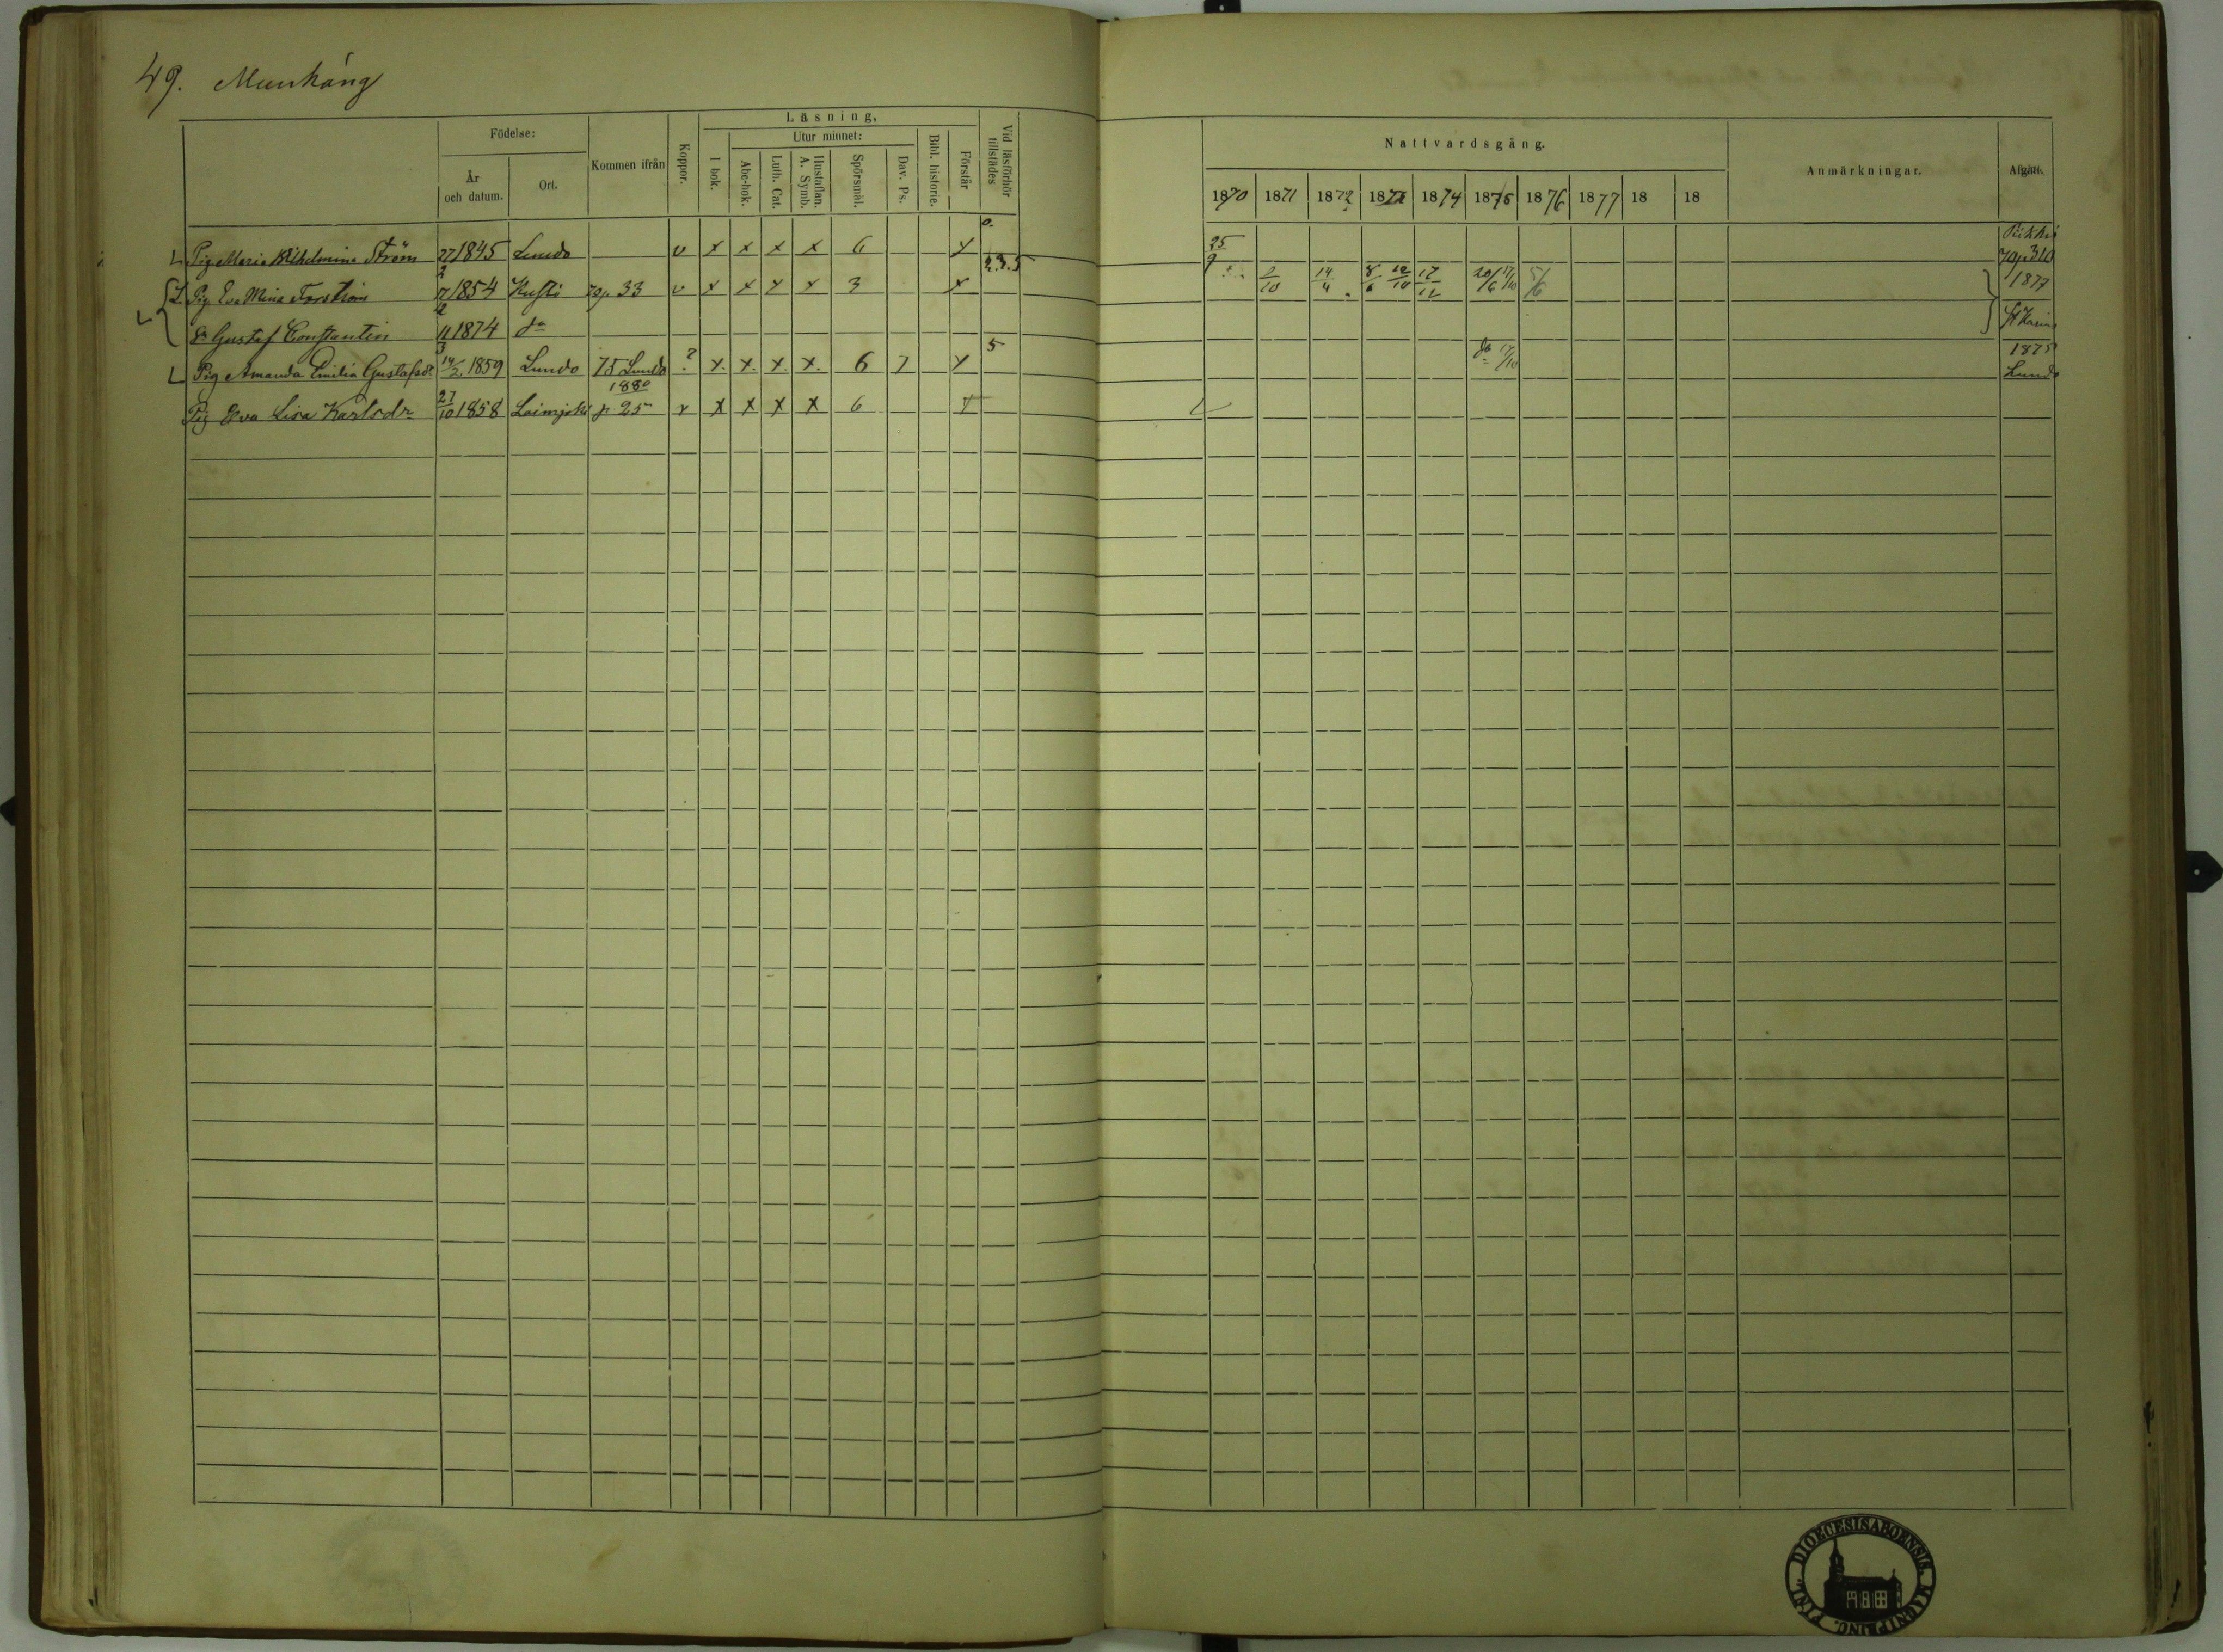 49. Munkäng
Födelse:
År och datum.
Ort.
Kommen ifrån
Koppor.
Läsning,
I bok.
Utur minnet:
Abc-bok.
Luth. Cat.
Hustaflan. A. Symb.
Spörsmål.
Dav. Ps.
Bibl. historie.
Förstår
Vid läsförhör tillstädes
Nattvardsgång.
1870 1871 1872 1873 1874 1875 1876 1877 18 18
Anmärkningar.
Afgått.
Pig Maria Wilhelmina Ström 27/2 1845 Lundo v x x x x 6 x 25/9 70 p. 310
Pig Eva Mina Forström 1854 Kustö 70 p. 33 v x x x x 3 x 2.3.5 2/10 14/4 17/12 20/6 17/10 5/6 1877
Gustaf Constantin 11/3 1874 do St Karins
Pig Amanda Emilia Gustafsdr 14/2 1859 Lundo 75 Lundo ? x x x x 6 7 x 5 17/10 1875 Lundo
Pig Eva Lisa Karlsdr 27/10 1858 Loimijoki 1880 p. 25 v x x x x 6 x
DIOECESIS ABOENSIS